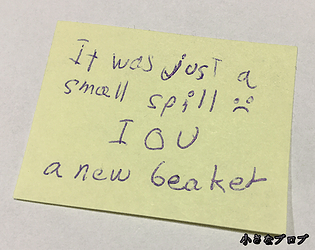 It was just a
small spill ☹
I O U
a new beaker
小さなブロブ